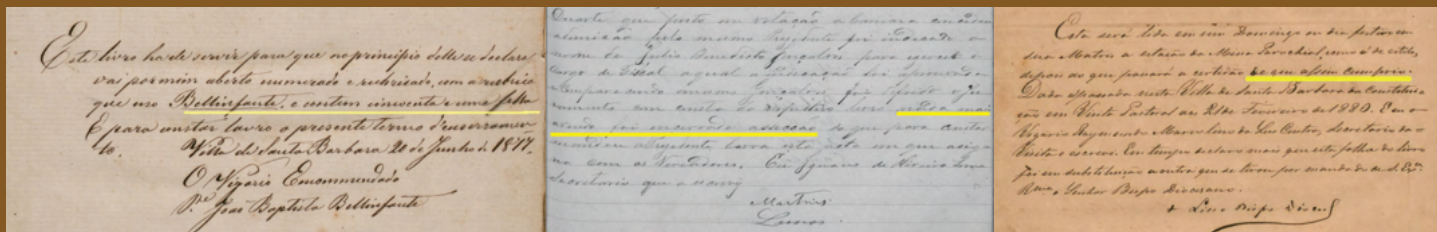 Este livro hade servir para que no principio delle se declara
vai por mim aberto numerado e rubricado, com a rubrica
que uso Bellinfante. e contem cincoenta e uma folha
E para constar lavro o presente termo d'encerramen-
to. Villa de Santa Barbara 20 de Junho de 1877.
O Vigario Encommendado
P.e Joao Baptista Bellinfante
Duarte que posto em votação a Camara concedeu
pelo mesmo foi indicado o
nome de Julio Benedicto Gonçalves para exercer o
cargo de Fiscal a qual a indicação foi approvada
Comparecendo o mesmo Gonçalves foi
em livro nada mais
avendo foi encerrada a secção do que para constar
o Prezidente lavra esta acta em que asig-
na com os Vereadores. Eu Ignacio de Lemos
Secretario que o
Martins
Lemos.
Esta será lida em um Domingo ou dia festivo em
sua Matriz a estação da Missa Parochial, como é de estilo,
depois do que passará a certidão de que assim cumprio.
Dada e passada nesta Villa de Santa Barbara da Constitui-
ção em Visita Pastoral aos de Fevereiro de 1880. E eu o
Vigario Raymundo Marcolino da Luz Cintra, Secretario da
Visita o escrevi. Em tempo declaro mais que esta folha do livro
foi em substituição a outra que se tirou por mandado de S. Ex.a
R.ma o Senhor Bispo Diocesano.
+ Lino Bispo Dioces